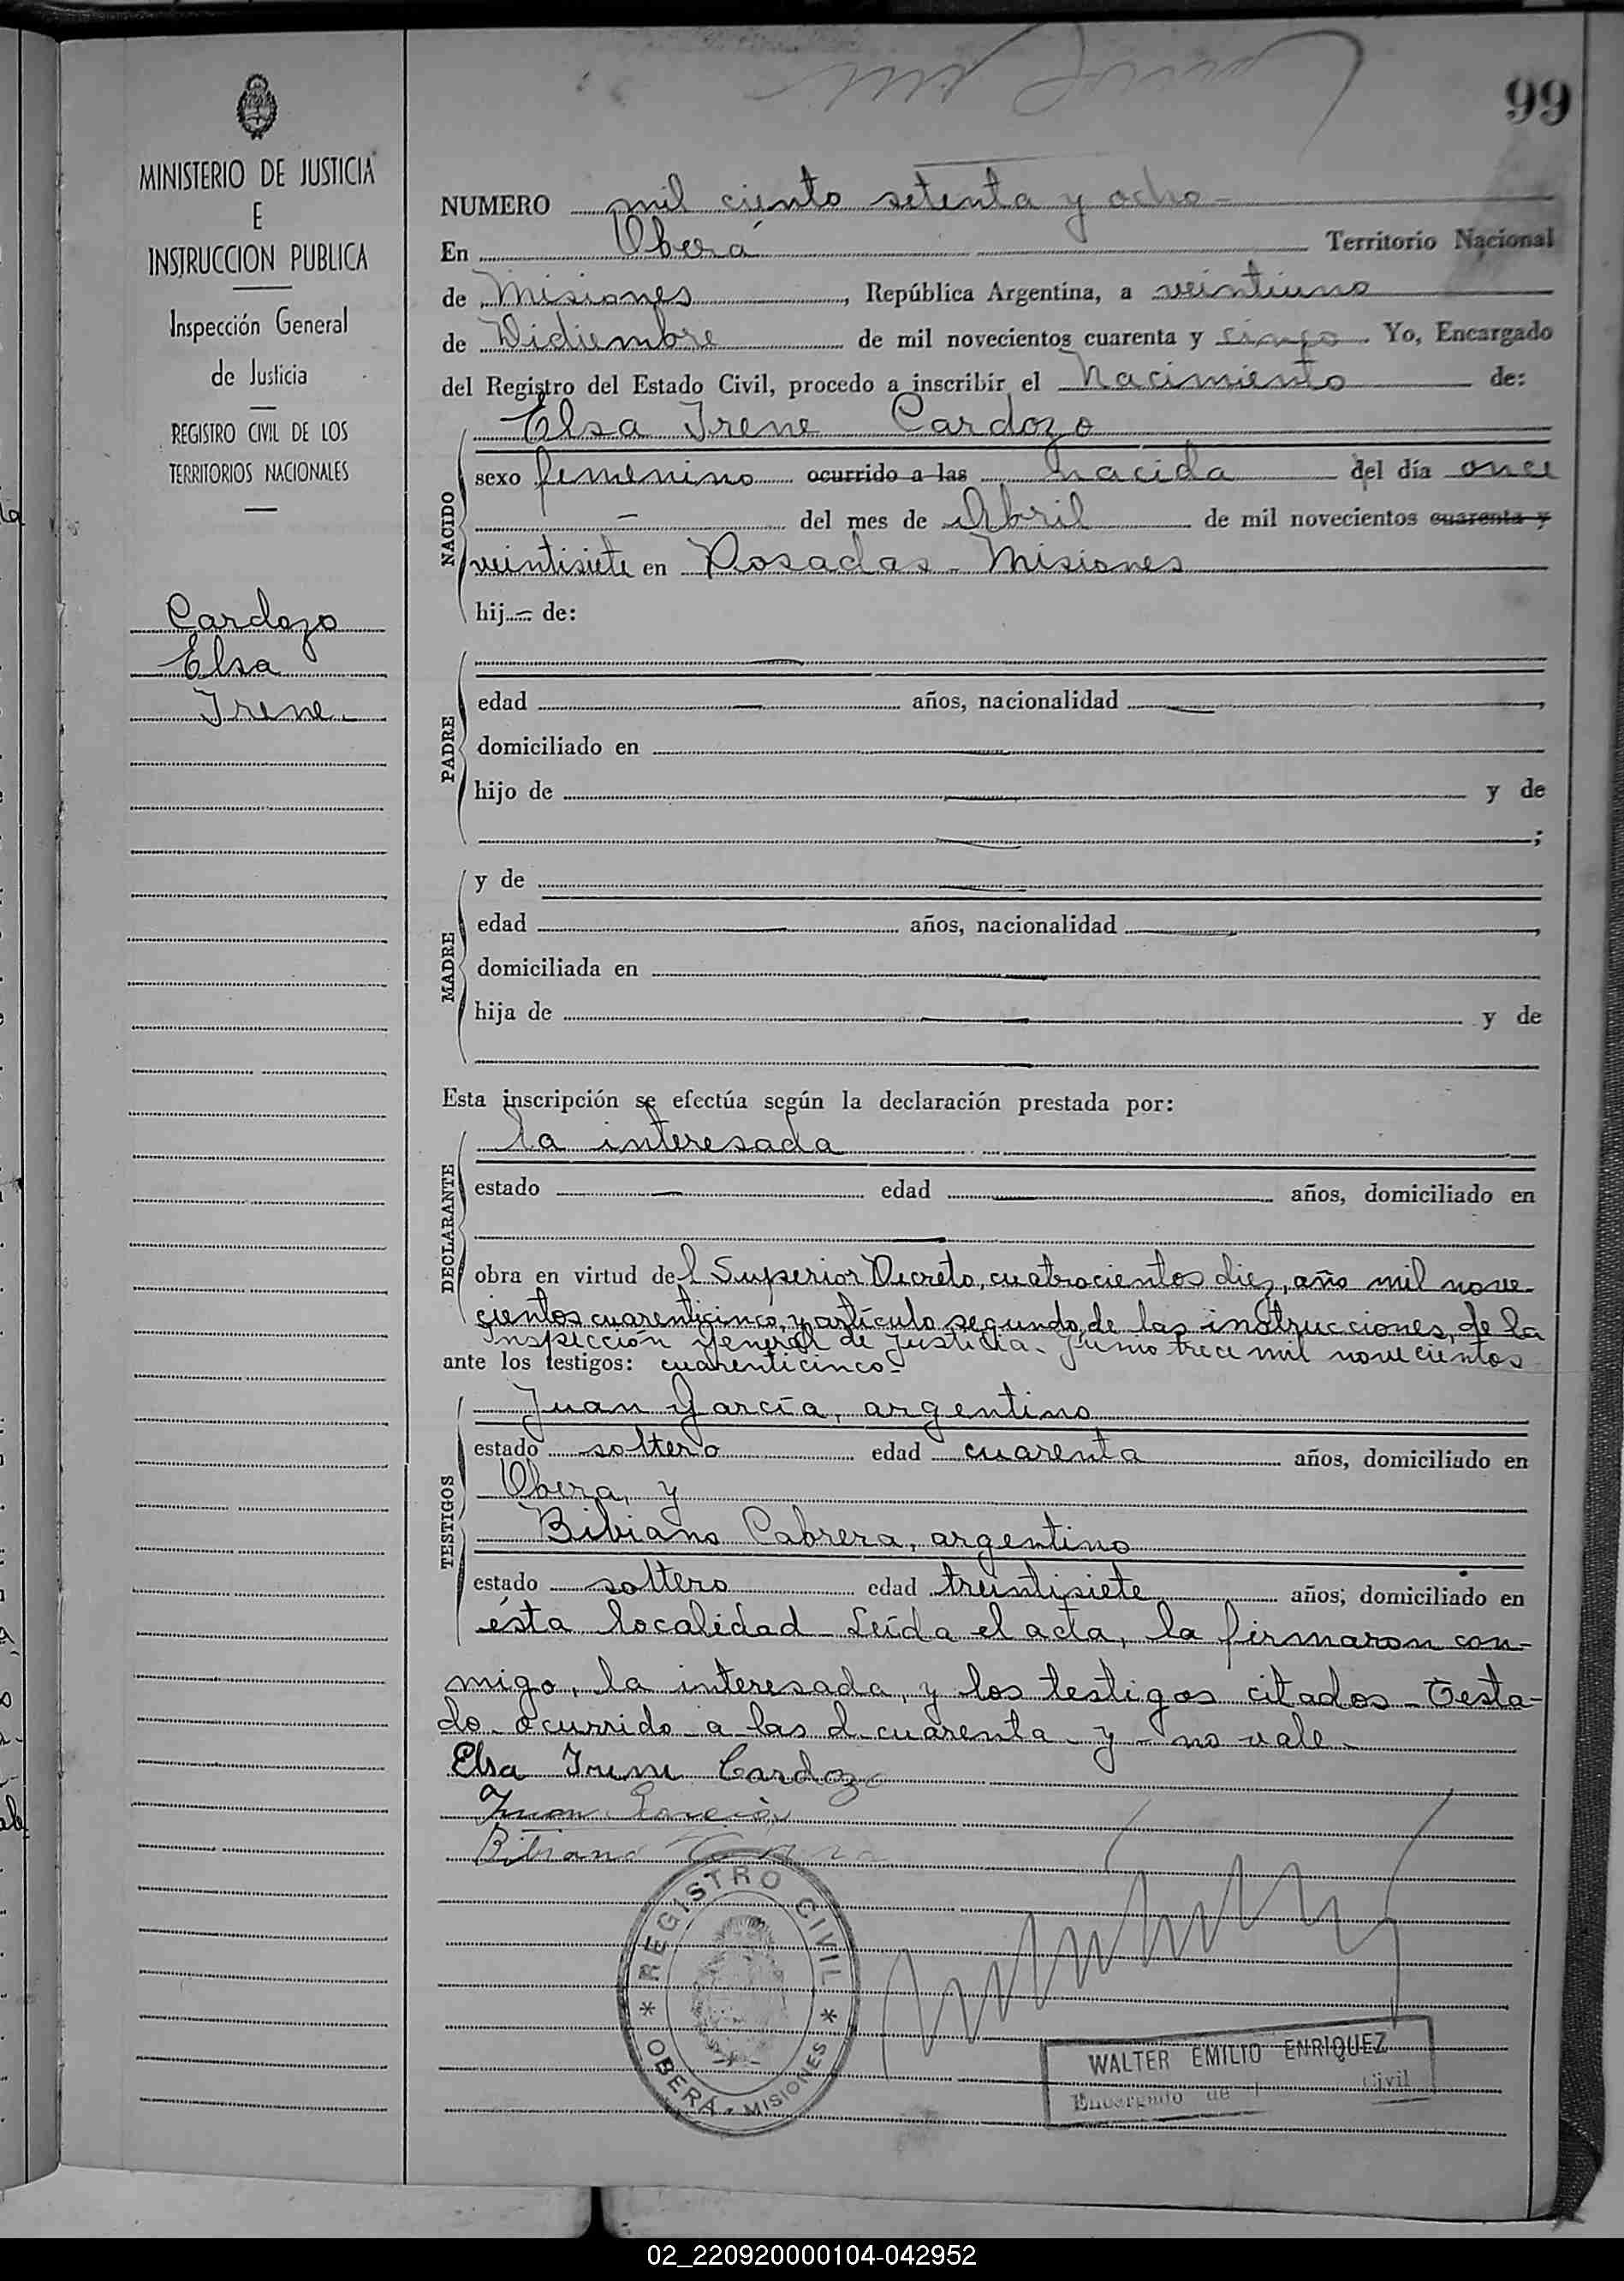 99
MINISTERIO DE JUSTICIA
E
INSTRUCCION PUBLICA
Inspección General
de Justicia
REGISTRO CIVIL DE LOS
TERRITORIOS NACIONALES
Cardozo
Elsa
Irene.
NUMERO mil ciento setenta y ocho -
En Oberá Territorio Nacional
de Misiones, República Argentina, a veintiuno
de Didiembre de mil novecientos cuarenta y cinco. Yo, Encargado
del Registro del Estado Civil, procedo a inscribir el Nacimiento de:
NACIDO
Elsa Irene Cardozo
sexo femenino ocurrido a las nacida del día once
- del mes de Abril de mil novecientos cuarenta y
veintisiete en Posadas - Misiones
hij - de:
PADRE
edad — años, nacionalidad —,
domiciliado en —
hijo de — y de
— ;
MADRE
y de —
edad — años, nacionalidad —,
domiciliada en —
hija de — y de
—
Esta inscripción se efectúa según la declaración prestada por:
DECLARANTE
la interesada
estado — edad — años, domiciliado en
—
obra en virtud del Superior Decreto, cuatrocientos diez, año mil nove-
cientos cuarenticinco, y artículo segundo, de las instrucciones, de la
Inspección General de Justicia - Junio trece mil novecientos
ante los testigos: cuarenticinco -
TESTIGOS
Juan García, argentino
estado soltero edad cuarenta años, domiciliado en
Obera, y
Bibiano Cabrera, argentino
estado soltero edad treintisiete años; domiciliado en
ésta localidad - Leída el acta, la firmaron con-
migo, la interesada, y los testigos citados - Testa-
do - ocurrido - a las d - cuarenta - y - no vale -
Elsa Irene Cardozo
Juan García
Bibiano
REGISTRO CIVIL
* OBERÁ - MISIONES *
WALTER EMILIO ENRIQUEZ
Encargado de Civil
02_220920000104-042952